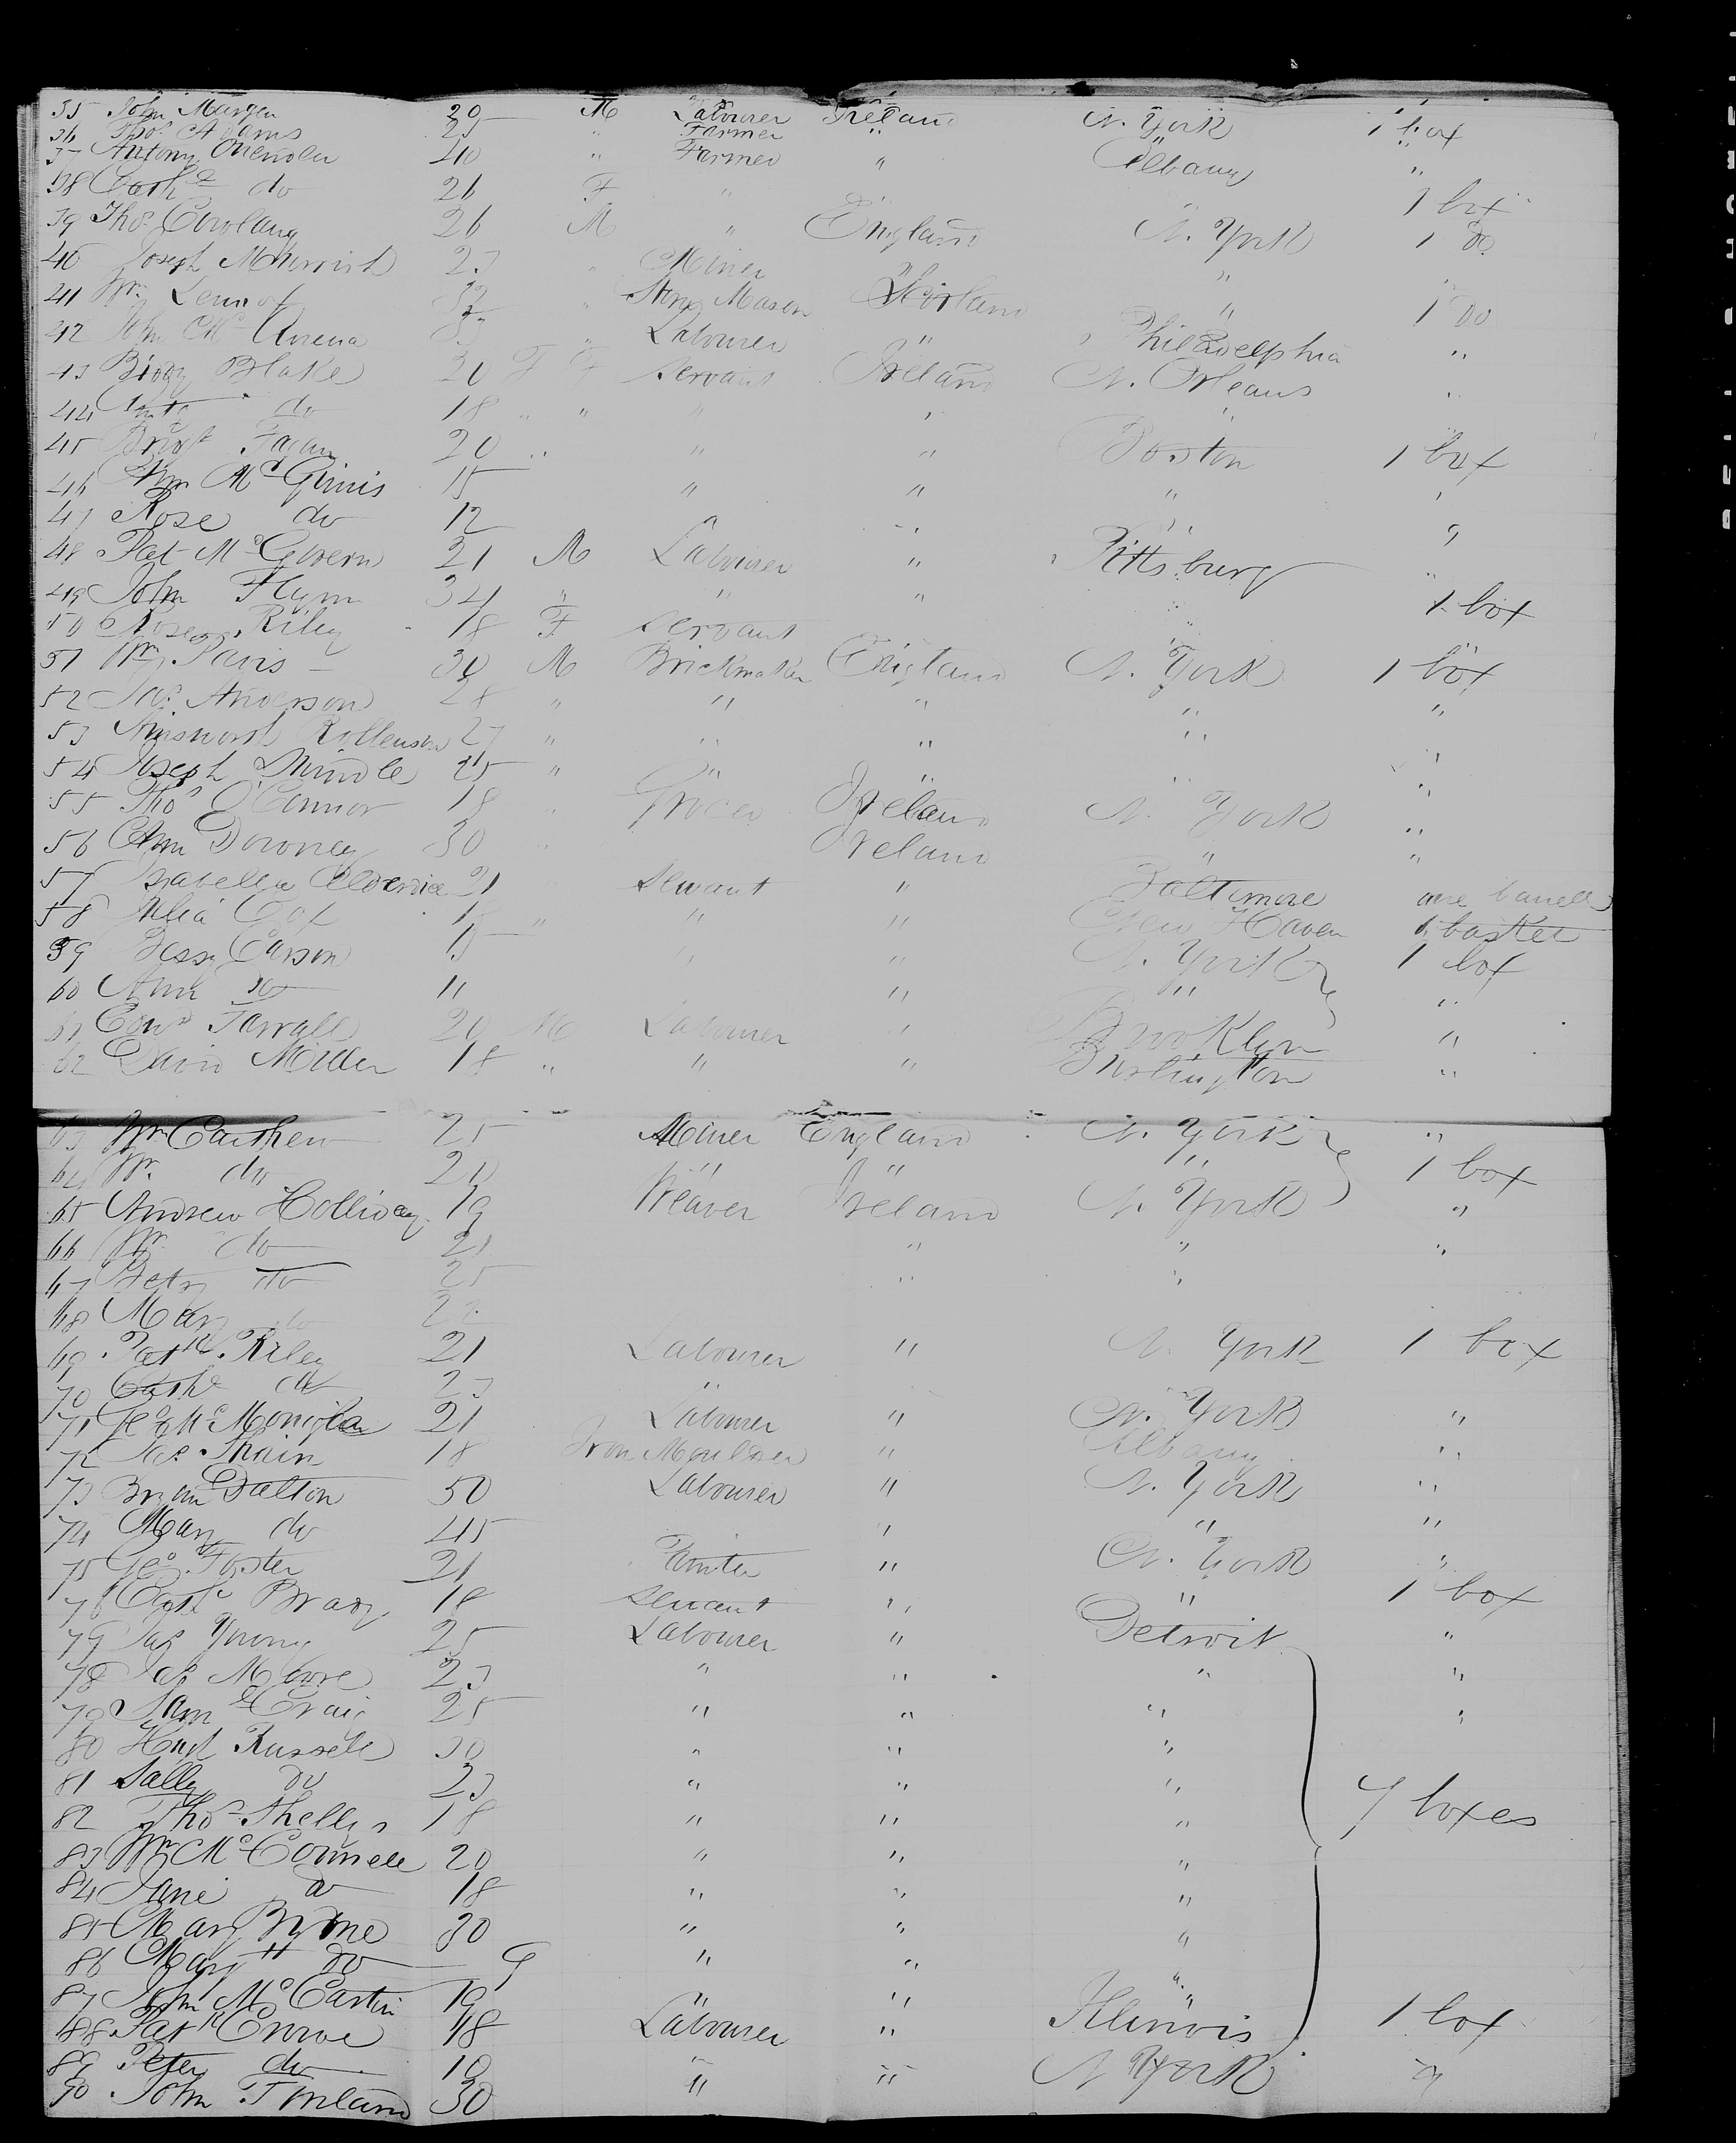 35 John Morgan 20 M Labourer Ireland N. York 1 box
36 Thos Adams 25 " Farmer " " "
37 Antony 40 " Farmer " Albany "
38 Cathe do 26 F " 1 box
39 Thos Cowlang 26 M " England N. York 1 do
40 Joseph 23 " Miner " "
41 Wm Lennox 32 " Stone Mason Scotland " 1 do
42 John Mc " Labourer " Philadelphia "
43 Biddy Blake 20 F F Servant Ireland N. Orleans "
44 do 18 " " " " "
45 Bridgt Fagan 20 " " " Boston 1 box
46 Ann McGinis 15 " " " "
47 Rose do 12 " " " "
48 Pat McGovern 21 M Labourer " Pittsburg "
49 John Flynn 34 " " " " 1 box
50 Rose Riley 18 F Servant "
51 Wm Davis 30 M Brickmaker England N. York 1 box
52 Jas Anderson 28 " " " " "
53 Ainsworth 27 " " " " "
54 Joseph 25 " " " " "
55 Thos O'Connor 18 " Grocer Ireland N. York "
56 Ann Downey 30 " Ireland " "
57 Isabella 21 Servant " Baltimore one barrell
58 Julia Cox 18 " " " New Haven 1 basket
59 Bessy Carson 15 " " N. York 1 box
60 Ann do 11 " " "
61 Edwd Farrall 20 M Labourer " Brooklyn "
62 David Miller 18 " " " Burlington "
63 Wm Carthew 25 Miner England N. York "
64 Wm do 20 " " " 1 box
65 Andrew Holliday 19 Weaver Ireland N. York "
66 Wm do 21 " " "
67 Betsy do 25 " "
68 Mary do 22
69 Patk Riley 21 Labourer " N. York 1 box
70 Cathe do 23 "
71 Geo McMonigla 21 Labourer " N. York "
72 Jas Thain 18 Iron Moulder " Albany "
73 Bryan Dalton 50 Labourer " N. York "
74 Mary do 45 " " "
75 Geo Foster 21 Painter " N. York "
76 Cathe Brady 18 Servant " " 1 box
77 Jas Young 25 Labourer " Detroit "
78 Jas Moore 23 " " " "
79 Sam Craig 25 " " " "
80 Hugh Russell 30 " " "
81 Sally do 23 " " "
82 Thos Shelly 18 " " " 7 boxes
83 Wm McConnell 20 " " "
84 Jane do 18 " " "
85 Mary Byrne 30 " " "
86 Mary H do 9 " " "
87 John McCartin 19 " " "
88 Patk Crowe 48 Labourer " Illinois 1 box
89 Peter do 10 " " N York "
90 John Finland 30 " "